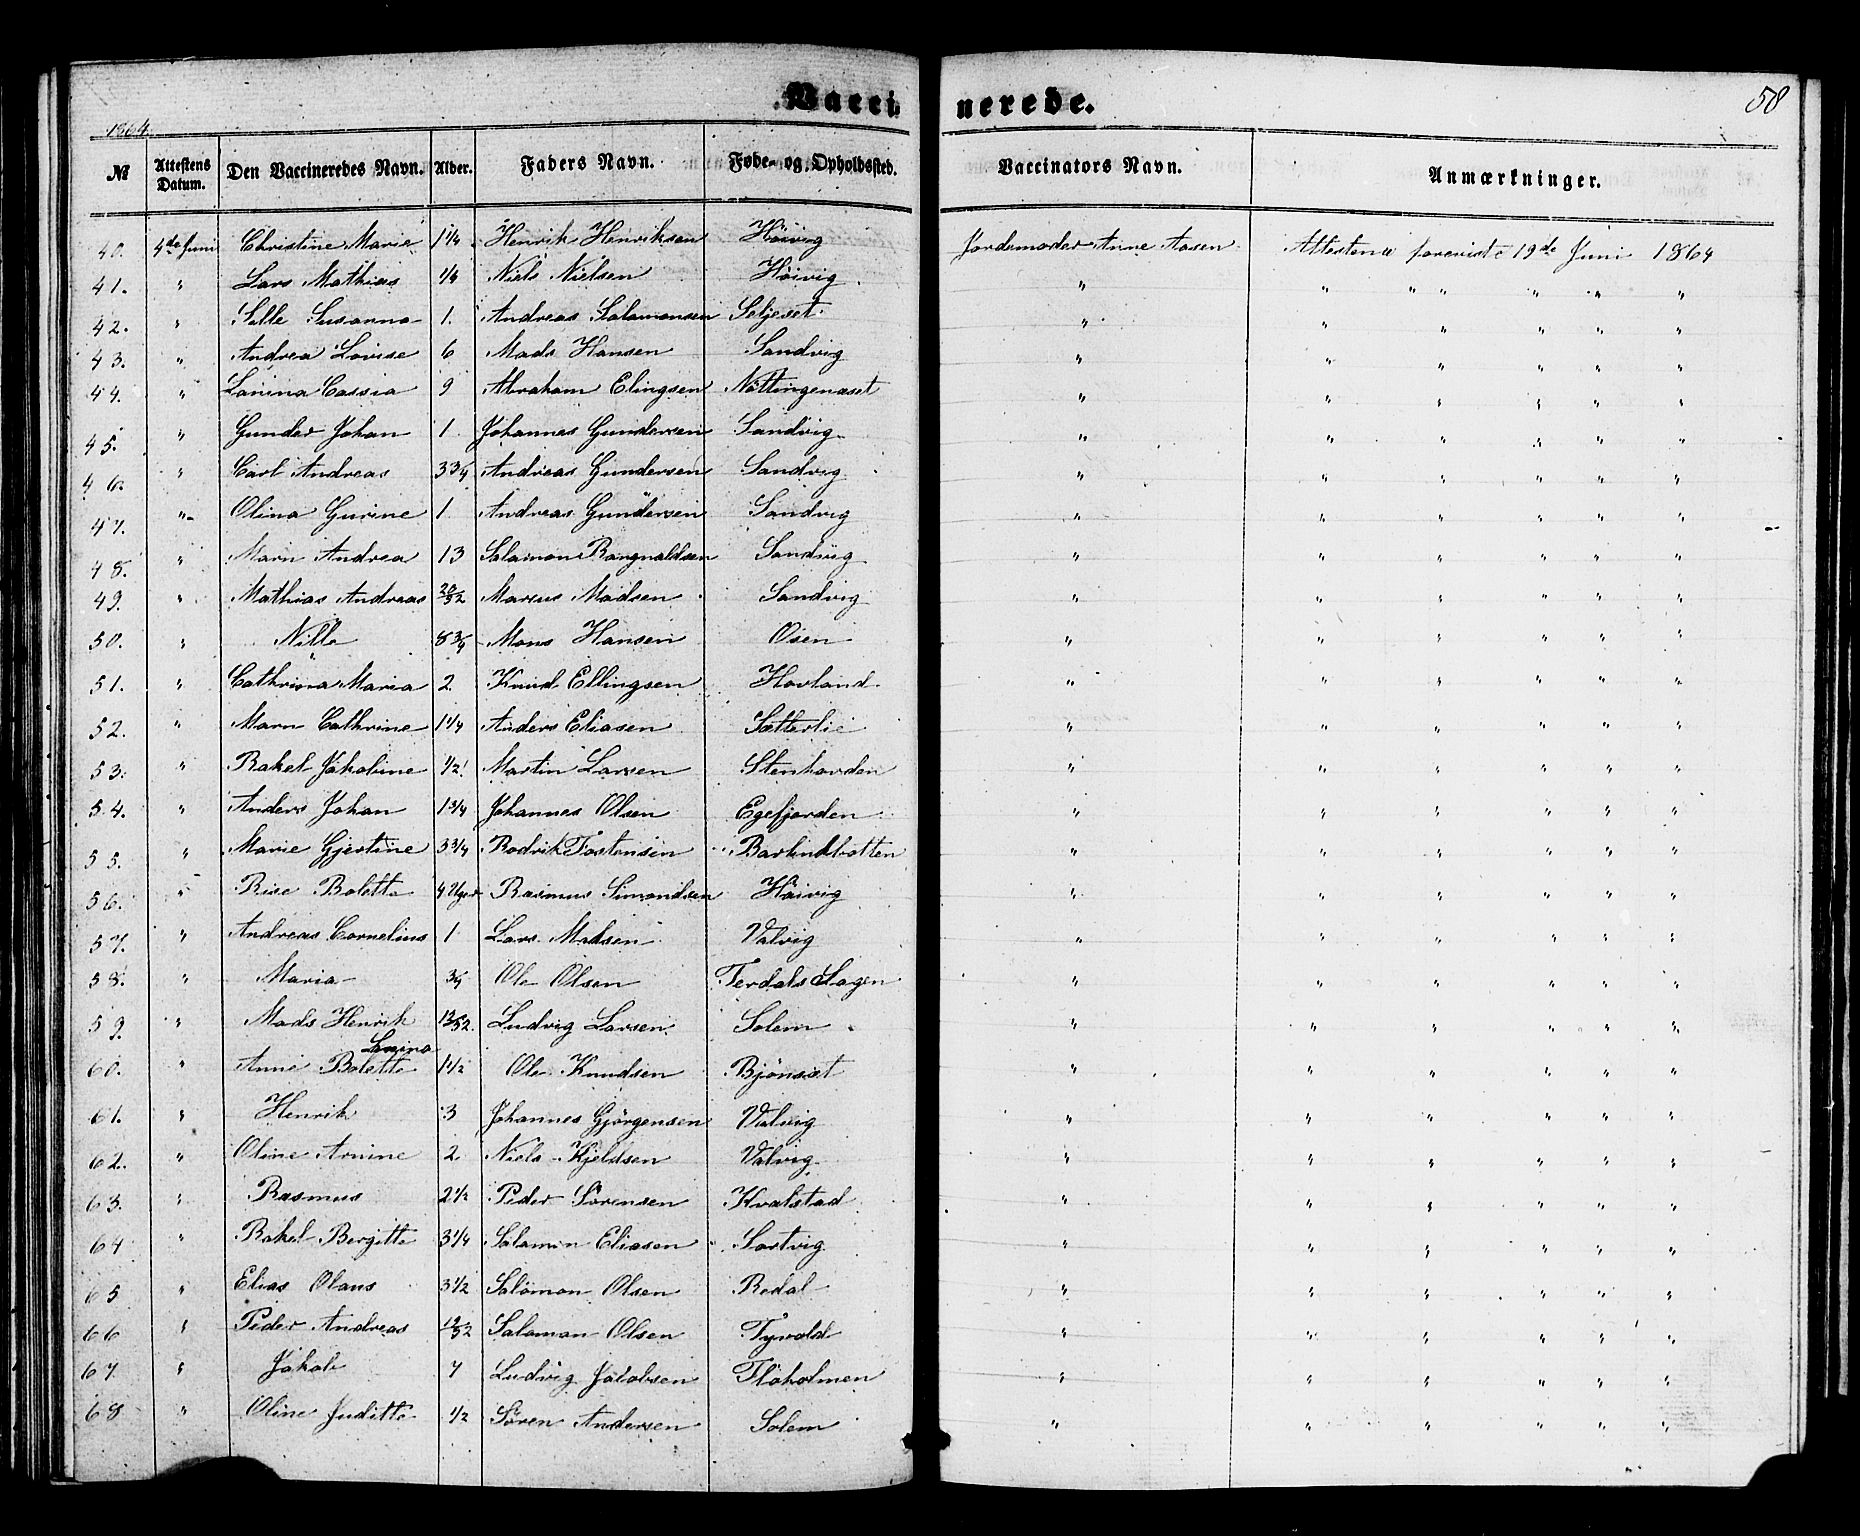 Vaccinerede.
58
1864.
№ Attestens Datum. Den Vaccineredes Navn. Alder. Faders Navn. Føde- og Opholdssted. Vaccinators Navn. Anmærkninger.
40. 4de Juni Christine Marie 1 1/4 Henrik Henriksen Höivig Jordemoder Anne Aasen Attesterne foreviste 19de Juni 1864
41. " Lars Mathias 1/4 Niels Nielsen Höivig " " " " " " "
42. " Sille Susanna 1. Andreas Salamonsen Seljeset " " " " " "
43. " Andrea Lovise 6 Mads Hansen Sandvig " " " " " "
44. " Lanina Cassia 9 Abraham Elingsen Nöttingenæset " " " " " "
45. " Gunder Johan 1. Johannes Gundersen Sandvig " " " " " "
46. " Carl Andreas 3 3/4 Andreas Gundersen Sandvig " " " " " "
47. " Olina Gurine 1 Andreas Gundersen Sandvig " " " " " "
48. " Marn Andrea 13 Salamon Rangnaldsen Sandvig " " " " " "
49. " Mathias Andreas 20/52 Marcus Madsen Sandvig " " " " " "
50. " Nille 8 3/4 Mons Hansen Osen " " " " " "
51. " Cathrina Maria 2 Knud Ellingsen Hovland " " " " " "
52. " Marn Cathrine 1 1/4 Anders Eliasen Sætterlie " " " " " "
53. " Rakel Jakobine 1/2 Martin Larsen Stenhovden " " " " " "
54. " Anders Johan 1 3/4 Johannes Olsen Egefjorden " " " " " "
55. " Marie Gjertine 3 3/4 Rodrik Tostensen Barlindbotten " " " " " "
56. " Rise Bolette 4 Uger Rasmus Simondsen Höivig " " " " " "
57. " Andreas Cornelius 1 Lars Madsen Valvig " " " " " "
58. " Maria 3/4 Ole Olsen Terdals Hagen " " " " " "
59. " Mads Henrik 12/52. Ludvig Larsen Solem " " " " " "
Lanina
60. " Anne Bolette 1 1/2 Ole Knudsen Bjönset " " " " " "
61. " Henrik 3 Johannes Gjörgensen Valvig " " " " " "
62. " Oline Arnine 2 Niels Kjeldsen Valvig " " " " " "
63. " Rasmus 2 1/2 Peder Sörensen Kvalstad " " " " " "
64 " Rakel Bergitte 3 1/4 Salamon Eliasen Sortvig " " " " " "
65 " Elias Olaus 3 1/2 Salomon Olsen Redal " " " " " "
66 " Peder Andreas 12/52 Salamon Olsen Tyvold " " " " " "
67. " Jakob 7 Ludvig Jacobsen Flöholmen " " " " " "
68 " Oline Juditte 1/2 Sören Andersen Solem " " " " " "